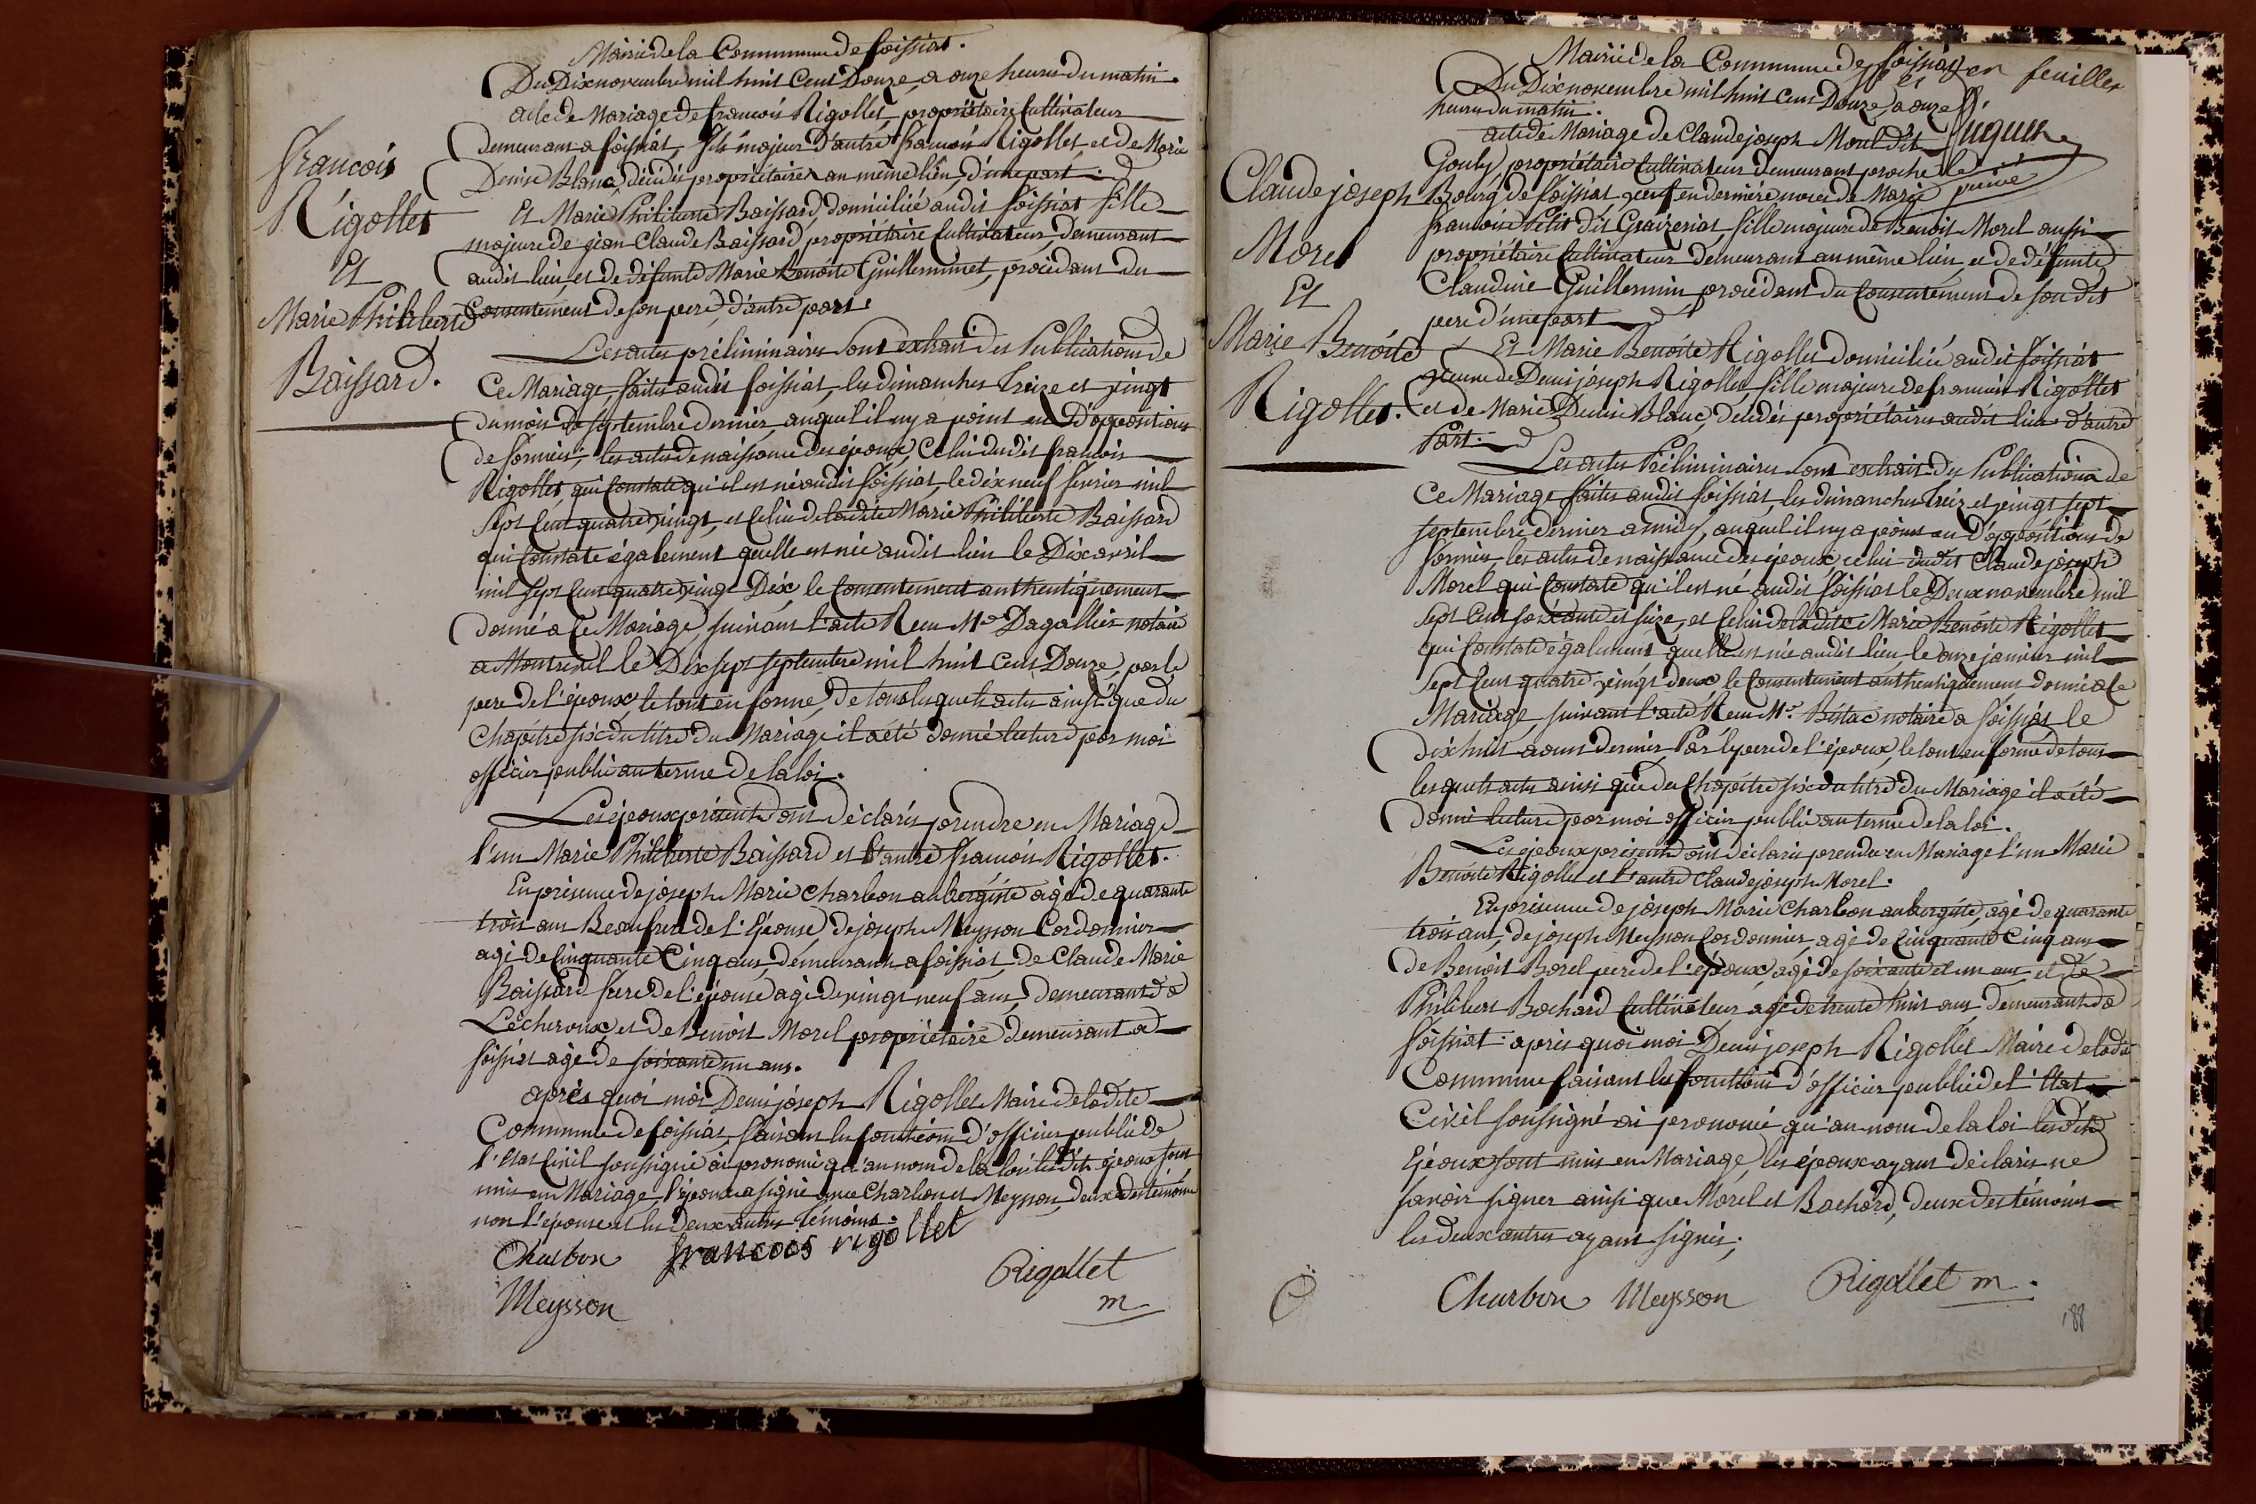 Mairie de la Commune de foissiat.
Du Dix novembre mil huit Cent Douze, a onze heures du matin.
acte de Mariage de francois Rigollet, propriétaire Cultivateur
demeurant a foissiat, fils majeur D'autre francois Rigollet, et de Marie
Denise Blanc, décédés propriétaires au même lieu, d'une part.
Et Marie Philiberte Baissard, domiciliée audit foissiat fille
majeure de jean Claude Baissard propriétaire Cultivateur, demeurant
audit lieu, et de défunte Marie Benoite Guilleminet, procédant du
Consentement de son pere, d'autre part.
francois
Rigollet
Et
Marie Philiberte
Baissard.
Les actes préliminaires sont extrait des Publications de
Ce Mariage, faites audit foissiat, les dimanches treize et vingt
du mois de septembre dernier, auquel il n'y a point eu D'oppositions
de formées; les actes de naissance des époux, Celui dudit francois
Rigollet, qui Constate qu'il est né audit foissiat, le dix neuf fevrier mil
sept Cent quatre vingt, et Celui de ladite Marie Philiberte Baissard
qui Constate également quelle est née audit lieu le Dix avril
mil sept Cent quatre vingt Dix, le Consentement authentiquement
donné a Ce Mariage, suivant l'acte Recu Me Dagallier notaire
a Montrevel le Dix sept septembre mil huit Cent Douze, par le
pere de l'époux, le tout en forme, de tous lesquels actes ainsi que du
Chapitre six du titre du Mariage il a été donné lecture par moi
officier public au terme de la loi.
Les époux présents ont déclarés prendre en Mariage
l'un Marie Philiberte Baissard et l'autre francois Rigollet.
En présence de joseph Marie Charbon aubergiste agé de quarante
trois ans Beaufrere de l'Epouse, de joseph Meysson Cordonnier
agé de Cinquante Cinq ans, demeurants a foissiat, de Claude Marie
Baissard frere de l'épouse agé de vingt neuf ans, demeurant a
Lécheroux, et de Benoit Morel propriétaire demeurant a
foissiat agé de soixante un ans.
après quoi moi Denis joseph Rigollet Maire de ladite
Commune de foissiat, faisant les fonctions d'officier public de
l'Etat Civil soussigné ai prononcé qu'au nom de la loi lesdits époux sont
unis en Mariage, l'époux a signé avec Charbon et Meysson, deux des témoins
non l'épouse et les deux autres témoins.
Charbon francoos rigollet
Rigollet
Meysson m.
Mairie de la Commune de foissiat en feuillet
Du Dix novembre mil huit Cent Douze, a onze
heures du matin.
acte de Mariage de Claude joseph Morel dit
Gouly, propriétaire Cultivateur demeurant proche le
Bourg de foissiat, veuf en derniére noces de Marie
francoise Petit dit Graizeriat, fils majeur de Benoit Morel aussi
propriétaire Cultivateur demeurant au même lieu et de défunte
Claudine Guillermin procédant du Consentement de son dit
pere d'une part
Claude joseph
Morel
Et
Marie Benoite
Rigollet.
Et Marie Benoite Rigollet domiciliée audit foissiat
veuve de Denis joseph Rigollet, fille majeure de francois Rigollet
et de Marie Denise Blanc, décédés propriétaires audit lieu d'autre
Part.
Les actes Préliminaires sont extrait des Publications de
Ce Mariage faites audit foissiat, les dimanches treize et vingt sept
septembre dernier a midi, auquel il n'y a point eu D'oppositions de
formées, les actes de naissance des époux celui dudit Claude joseph
Morel qui Constate qu'il est né audit foissiat le Deux novembre mil
sept Cent soixante et seize, et Celui de ladite Marie Benoite Rigollet
qui Constate également quelle est née audit lieu, le onze janvier mil
sept Cent quatre vingt deux, le Consentement authentiquement donné a Ce
Mariage suivant l'acte Recu Me. notaire a foissiat le
dix huit aoust dernier, Par le pere de l'époux, le tout en forme de tous
lesquels actes ainsi que du Chapitre six du titre du Mariage il a été
donné lecture par moi officier public au terme de la loi.
Les époux présents ont déclarés prendre en Mariage l'un Marie
Benoite Rigollet et l'autre Claude joseph Morel.
En présence de joseph Marie Charbon aubergiste, agé de quarante
trois ans, de joseph Meysson Cordonnier, agé de Cinquante Cinq ans
de Benoit Borel pere de l'époux, agé de soixante et un ans et de
Philibert Bochard Cultivateur agé de trente huit ans demeurant a
foissiat. après quoi moi Denis joseph Rigollet Maire de ladite
Commune faisant les fonctions d'officier public de l'Etat
Civil soussigné ai prononcé qu'au nom de la loi lesdits
Epoux sont unis en Mariage, les époux ayant déclarés ne
savoir signer ainsi que Morel et Bochard, deux des témoins
les deux autres ayant signés;
Charbon Meysson Rigollet m.
188